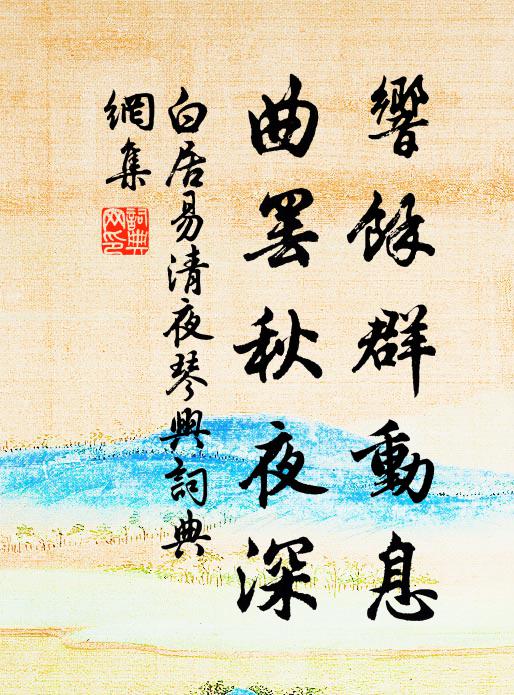 響餘群動息
曲罷秋夜深
白居易清夜琴興詞典
網集
詞典
网印